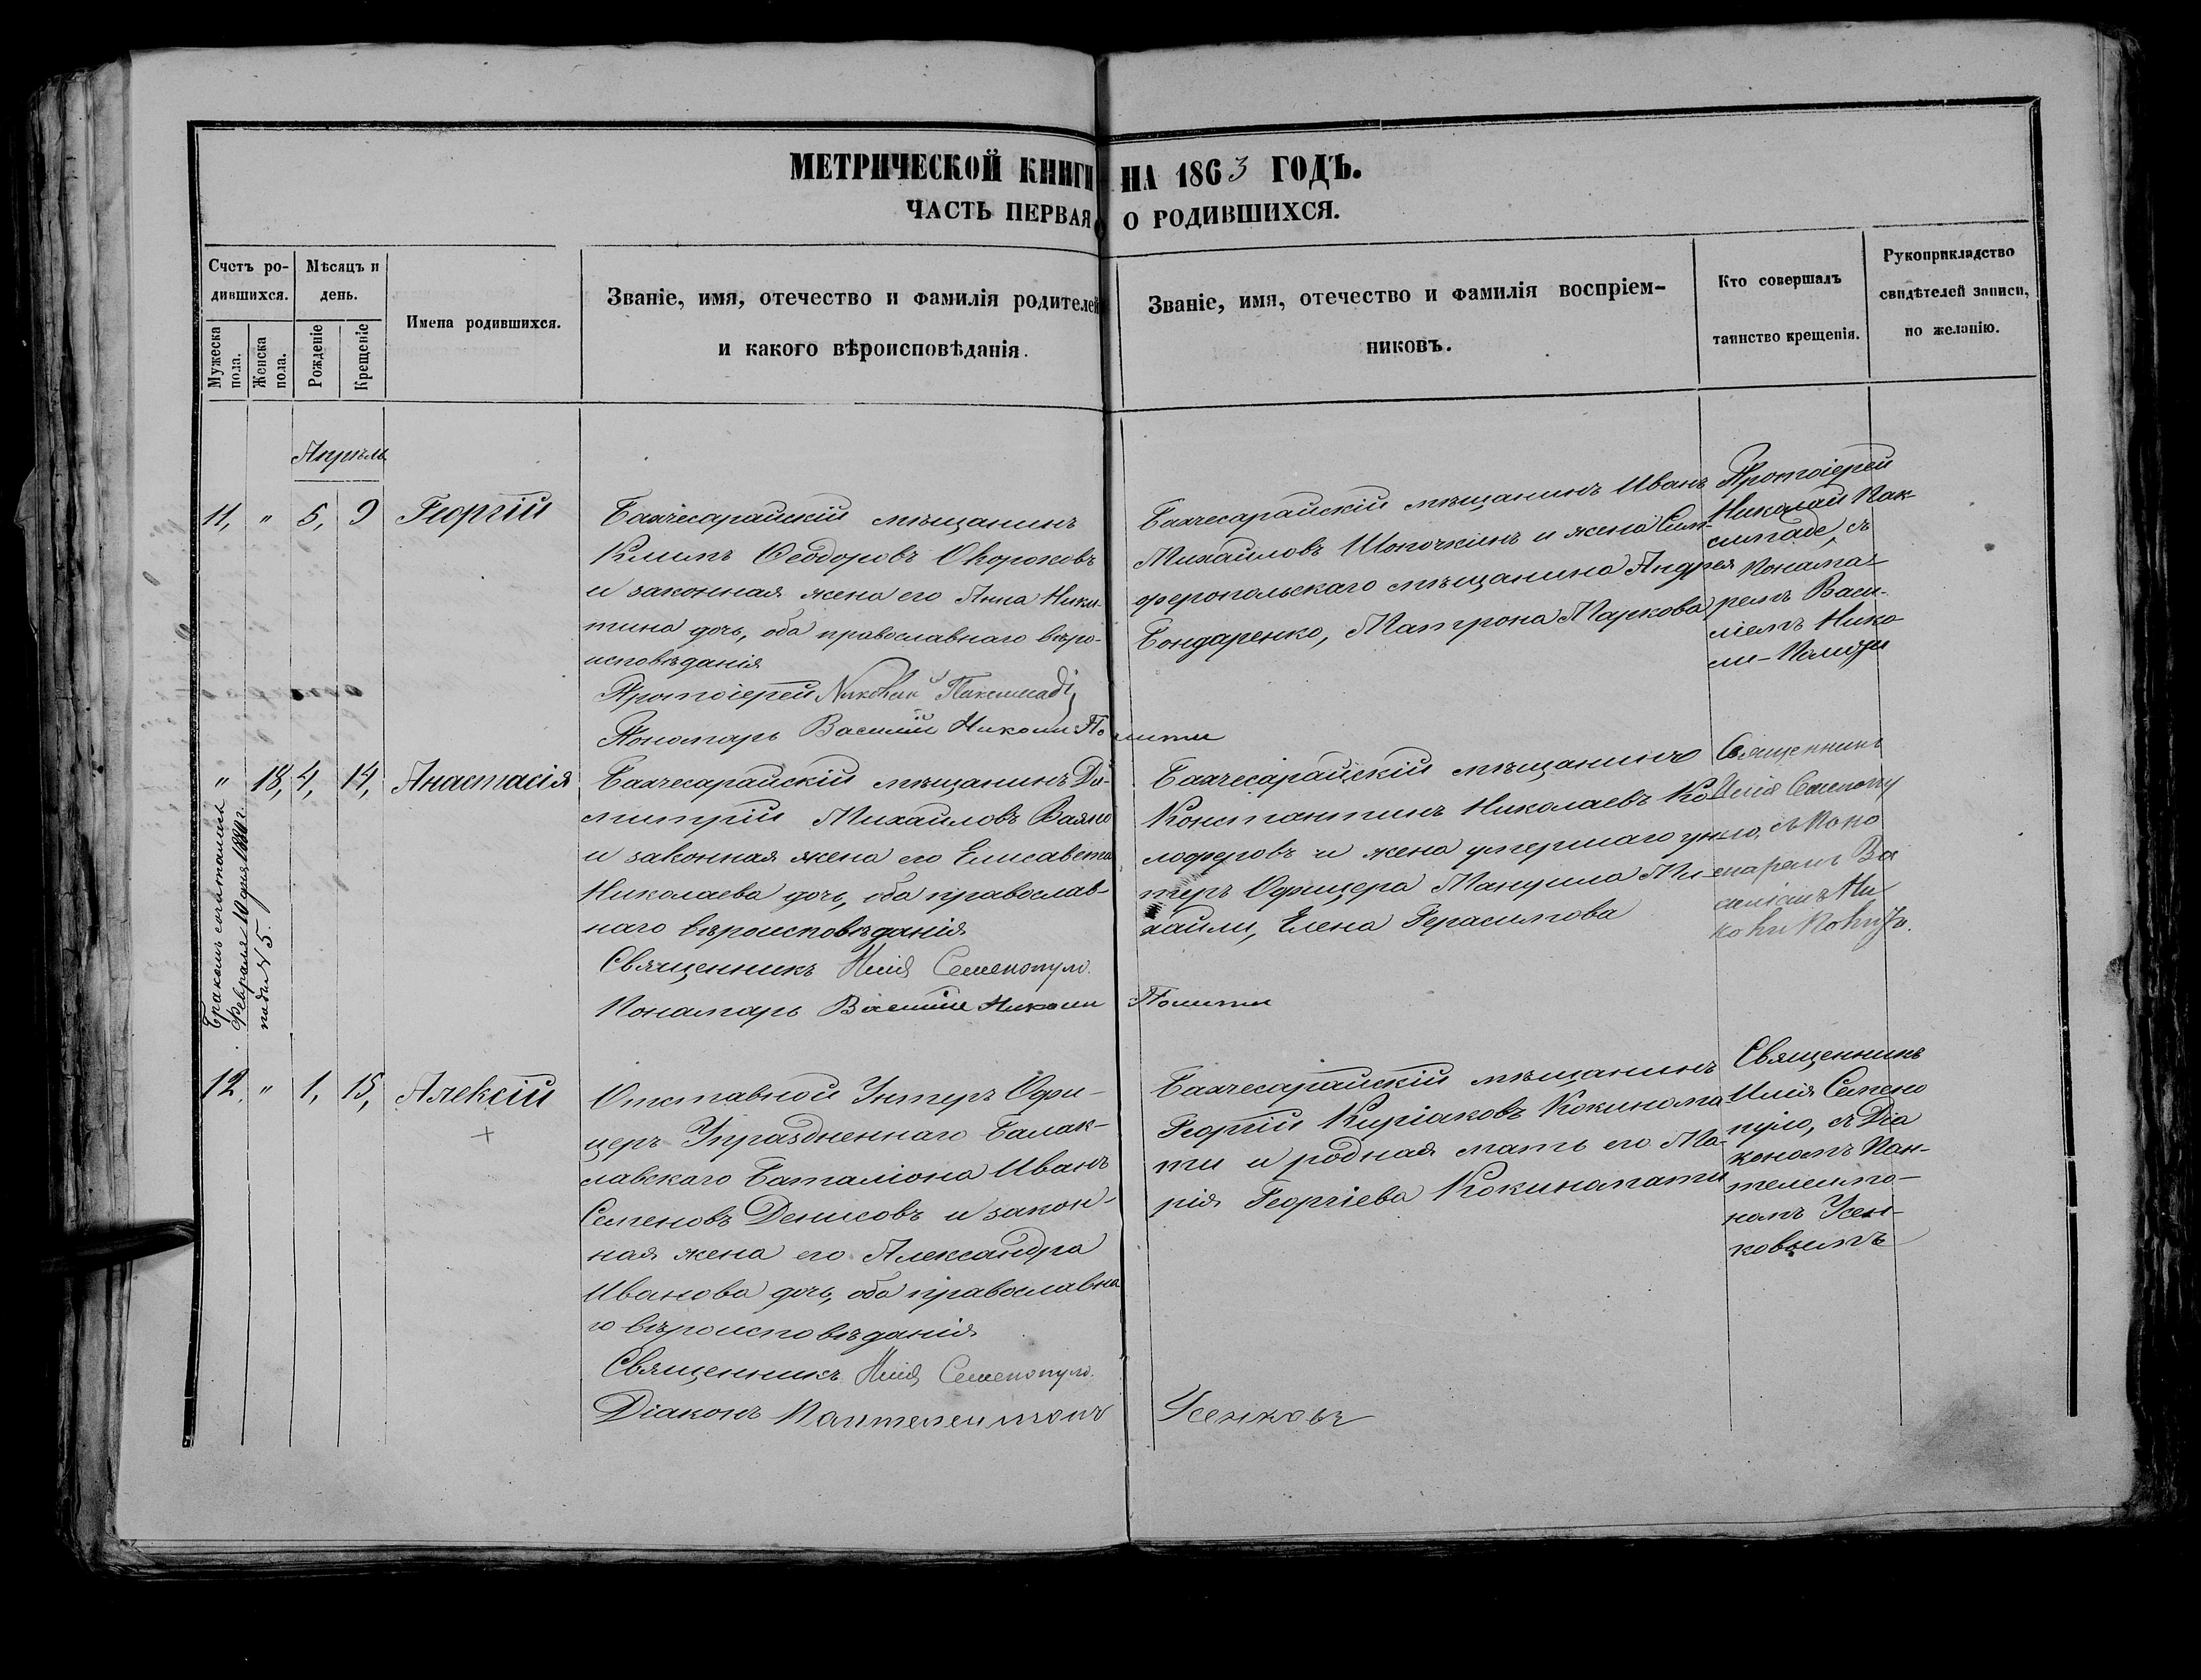 МЕТРИЧЕСКОЙ КНИГИ НА 1863 ГОДЪ.
ЧАСТЬ ПЕРВАЯ, О РОДИВШИХСЯ.
Счетъ ро-
дившихся.
Мужеска
пола.
Женска
пола.
Мѣсяцъ и
день.
Рожденіе
Крещеніе
Имена родившихся.
Званіе, имя, отечество и фамилія родителей
и какого вѣроисповѣданія.
Званіе, имя, отечество и фамилія воспріем-
никовъ.
Кто совершалъ
таинство крещенія.
Рукоприкладство
свидѣтелей записи,
по желанію.
Апрѣль
11, " 5, 9 Георгій
Бахчесарайскій мѣщанинъ
Климъ Ѳеодоровъ Скороковъ
и законная жена его Анна Ники-
тина дочь, оба православнаго вѣро-
исповѣданія
Протоіерей Николай Паксимади
Пономарь Василій Николи Политы
Бахчесарайскій мѣщанинъ Иванъ
Михаиловъ Шопочкинъ и жена Сим-
феропольскаго мѣщанина Андрея
Бондаренко, Матрона Маркова
Протоіерей
Николай Пак-
симаде, съ
Понама-
ремъ Васи-
ліемъ Нико-
ли-Полити
" 18, 4, 14, Анастасія
Бракомъ сочитались
Февраля 10 дня 1880 г.
подъ № 5.
Бахчесарайскій мѣщанинъ Ди-
митрій Михаиловъ Ваяно
и законная жена его Елисавета
Николаева дочь, оба православ-
наго вѣроисповѣданія
Священникъ Илія Семенопуло.
Понамарь Василій Николи Политы
Бахчесарайскій мѣщанинъ
Константинъ Николаевъ Ка-
лоферовъ и жена умершаго ун-
теръ Офицера Мануила Ми-
хаили, Елена Герасимова
Священникъ
Илія Семенопу
ло, съ Поно
маремъ Ва
силіемъ Ни
коли Политы.
12, " 1, 15, Алексій
+
Отставной Унтеръ Офи-
церъ Упраздненнаго Балак-
лавскаго Баталіона Иванъ
Семеновъ Денисовъ и закон-
ная жена его Александра
Иванова дочь, оба православна
го вѣроисповѣданія
Священникъ Илія Семенопуло.
Діаконъ Пантелеимонъ Усенковъ
Бахчесарайскій мѣщанинъ
Георгій Киріаковъ Кокинопа
ти и родная мать его Ма-
рія Георгіева Кокинопати
Священникъ
Илія Семено
пуло, съ Діа
кономъ Пан-
телеимо-
номъ Усен-
ковымъ